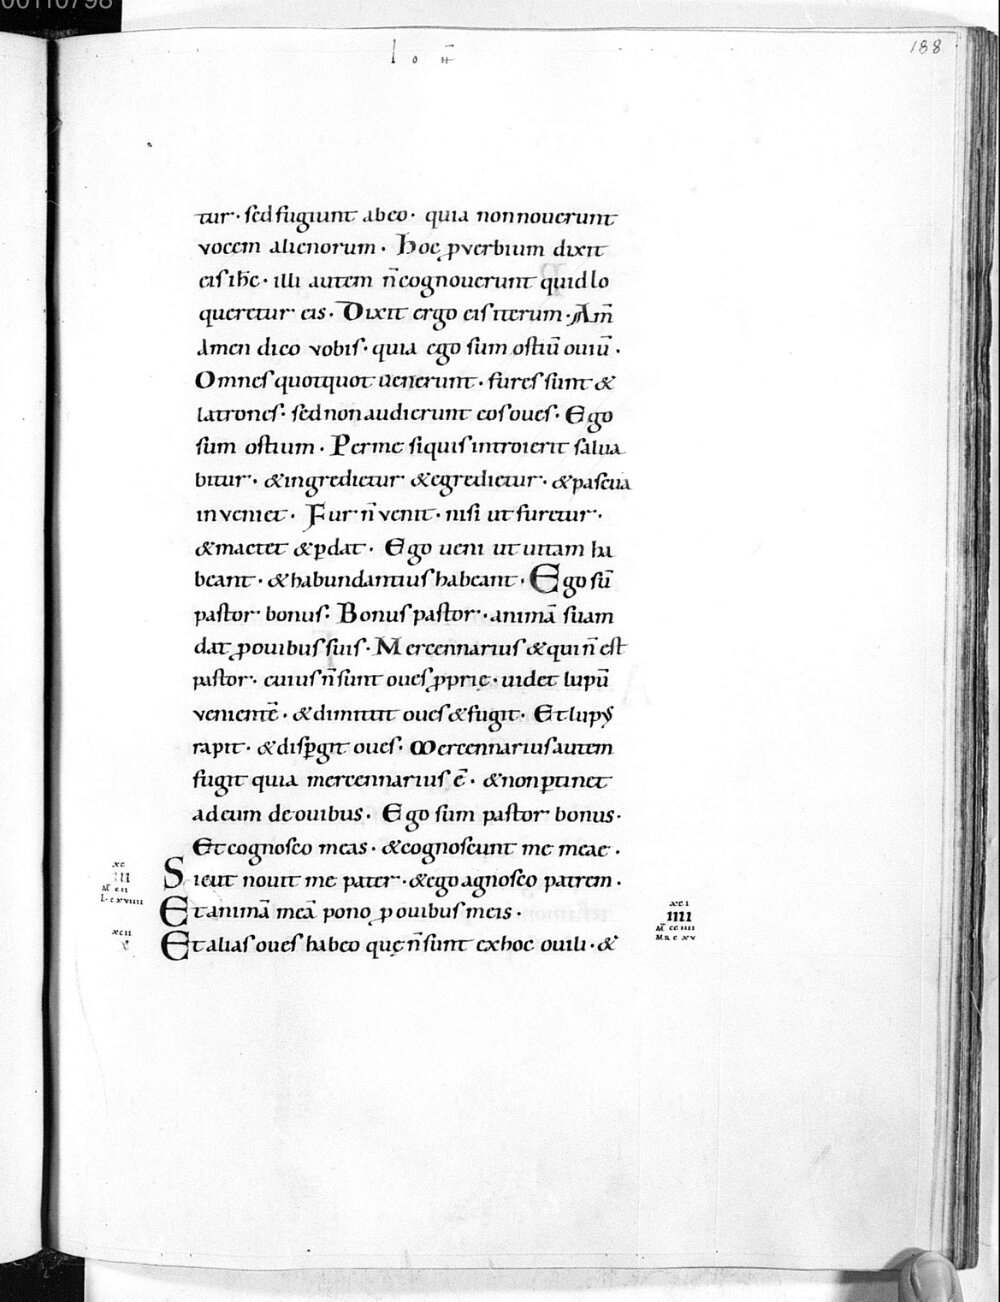 00110798
188
tur · sed fugiunt abeo · quia non noverunt
vocem alienorum · Hoc ꝓverbium dixit
eis ihc̄ · illi autem n̄ cognoverunt quid lo
queretur eis · Dixit ergo eis iterum · Am̄
Amen dico vobis · quia ego sum ostiū ouiū ·
Omnes quotquot uenerunt · fures sunt &
latrones · sed non audierunt eos oues · Ego
sum ostium · Per me si quis introierit salua
bitur · & ingredietur & egredietur · & pascua
inveniet · Fur n̄ venit · nisi ut furetur ·
& mactet & ꝑdat · Ego ueni ut uitam ha
beant · & habundantius habeant · Ego sū
pastor bonus · Bonus pastor · animā suam
dat ꝓ ouibus suis · Mercennarius & qui n̄ est
pastor · cuius n̄ sunt oues ꝓprię · uidet lupū
venientē · & dimittit oues & fugit · Et lupꝰ
rapit · & disꝑgit oues · Mercennarius autem
fugit quia mercennarius ē · & non ꝑtinet
ad eum de ouibus · Ego sum pastor bonus ·
Et cognosco meas · & cognoscunt me meae ·
Sicut novit me pater · & ego agnosco patrem ·
Et animā meā pono ꝓ ouibus meis ·
Et alias oues habeo quę n̄ sunt ex hoc ouili · &
xc
III
xci
IIII
xcii